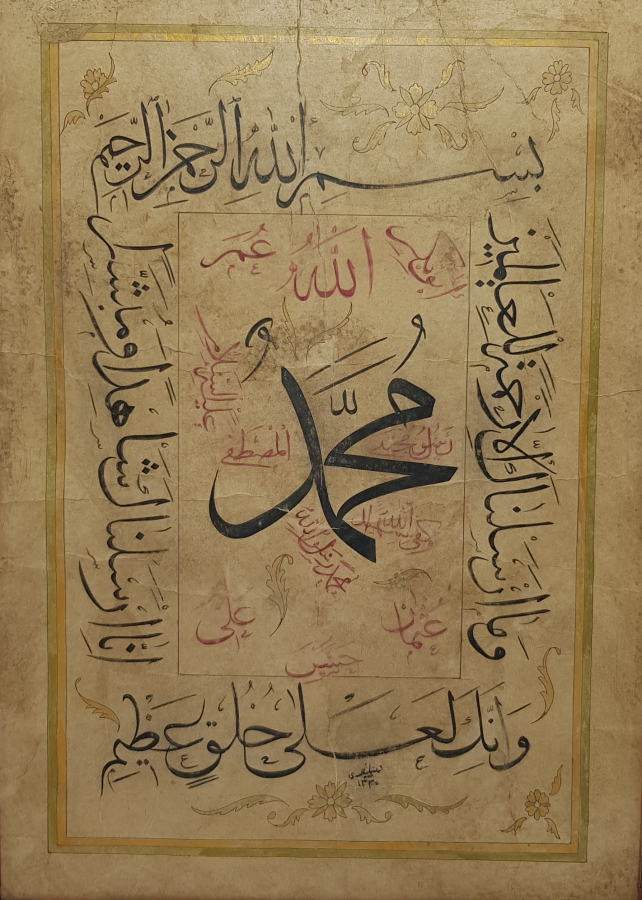 بسم الله الرحمن الرحيم
وما ارسلناك الا رحمة للعالمين
انا ارسلناك شاهدا ومبشرا
وانك لعلى خلق عظيم
الله
عمر
محمد
عليه السلام
المصطفى
محمد رسول الله
عثمان
على
حسين
١٣٣٥